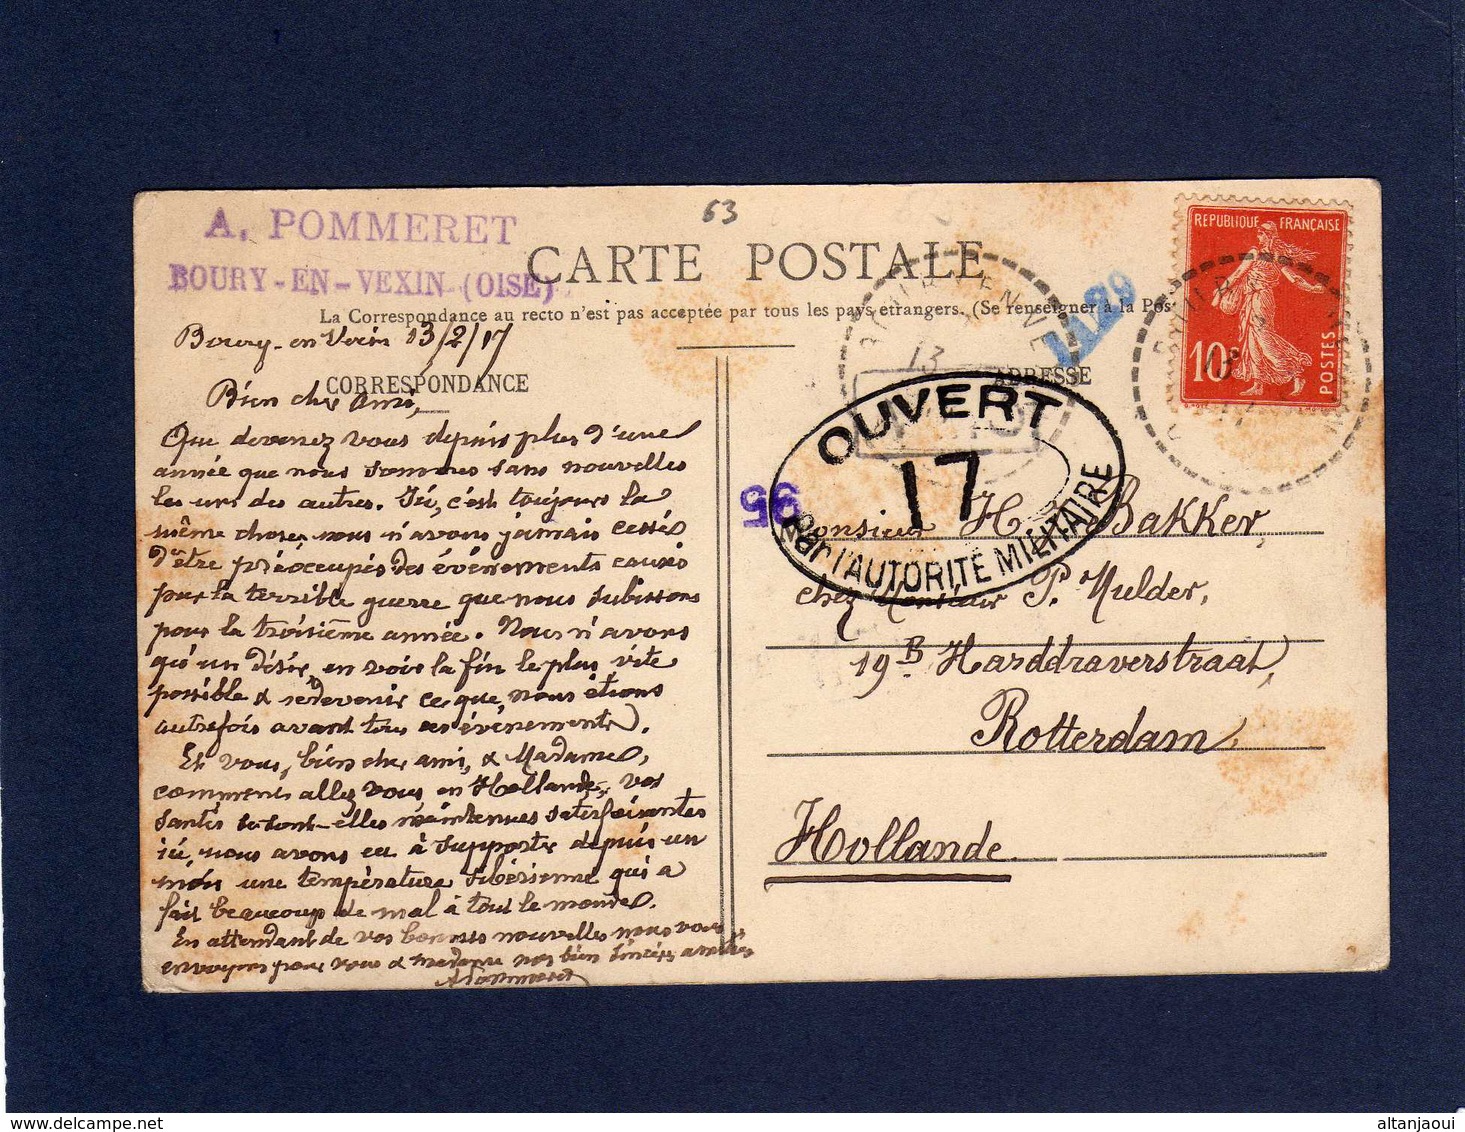 63
A. POMMERET
BOURY-EN-VEXIN (OISE)
CARTE POSTALE
La Correspondance au recto n'est pas acceptée par tous les pays etrangers. (Se renseigner à la Pos
Boury-en-Vexin 13/2/17
CORRESPONDANCE
Bien cher Ami,
Que devenez vous depuis plus d'une
année que nous sommes sans nouvelles
les uns des autres. Ici, c'est toujours la
même chose, nous n'avons jamais cessé
d'être préoccupés des événements causés
par la terrible guerre que nous subissons
pour la troisième année. Nous n'avons
qu'un désir, en voir la fin le plus vite
possible & redevenir ce que nous étions
autrefois avant tous ces événements.
Et vous, bien cher ami, & Madame,
comment allez vous en Hollande, vos
santés se sont-elles maintenues satisfaisantes
ici, nous avons eu à supporter depuis un
mois une température sibérienne qui a
fait beaucoup de mal à tout le monde.
En attendant de vos bonnes nouvelles nous vous
envoyons pour vous & madame nos bien sincères amitiés
A Pommeret
REPUBLIQUE FRANÇAISE
10c
POSTES
13
ADRESSE
OUVERT
17
Par l'AUTORITÉ MILITAIRE
95
Monsieur H. Bakker,
chez Monsieur P. Mulder,
19B Harddraverstraat,
Rotterdam,
Hollande
altanjaoui